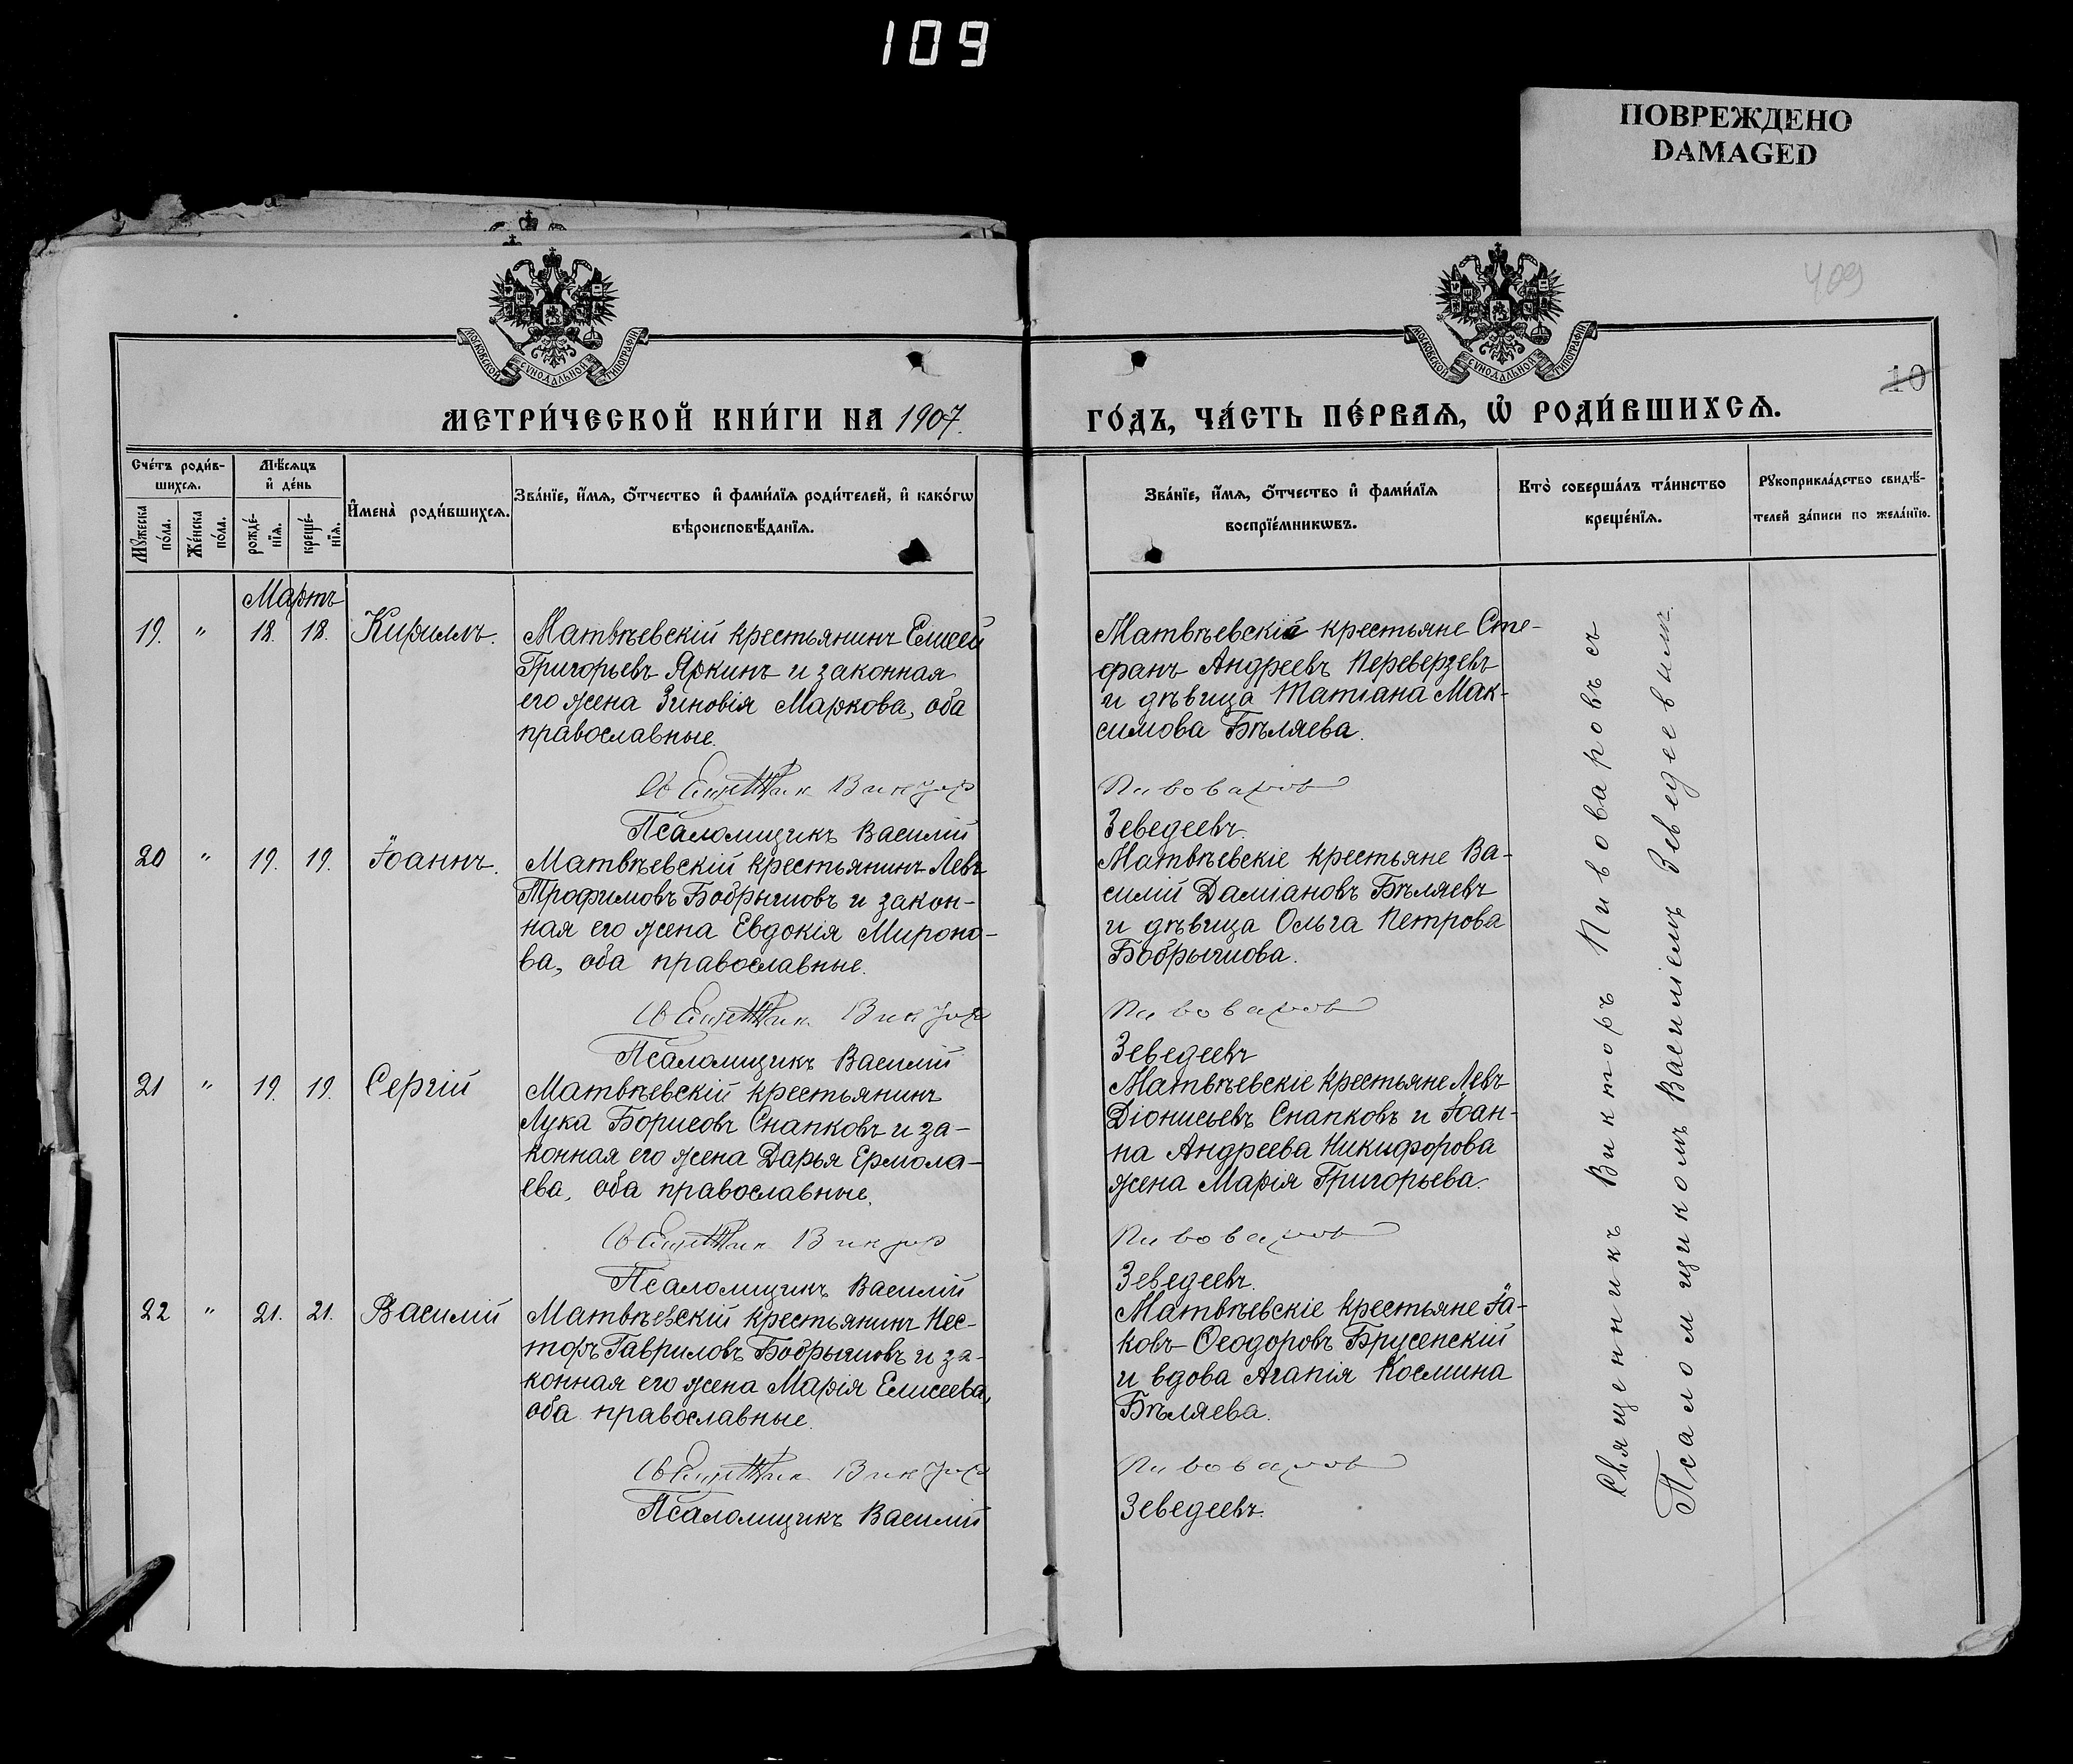 109
ПОВРЕЖДЕНО
DAMAGED
409
10
МОСКОВСКОЙ СѴНОДАЛЬНОЙ ТИПОГРАФІИ
МОСКОВСКОЙ СѴНОДАЛЬНОЙ ТИПОГРАФІИ
МЕТРИ́ЧЕСКОЙ КНИ́ГИ НА 1907.
ГО́ДЪ, ЧА́СТЬ ПЕ́РВАѦ, Ѡ҆ РОДИ́ВШИХСѦ.
Сче́тъ роди́в-
шихсѧ.
Мѣ́сѧцъ
и҆ де́нь
Мꙋжеска
по́ла.
Же́нска
по́ла.
рожде́-
нїѧ.
креще́-
нїѧ.
И҆мена̀ роди́вшихсѧ.
Зва́нїе, и҆́мѧ, ѻ҆́тчество и҆ фами́лїѧ роди́телей, и҆ како́гѡ
вѣроисповѣ́данїѧ.
Зва́нїе, и҆́мѧ, ѻ҆́тчество и҆ фами́лїѧ
воспрїе́мникѡвъ.
Кто̀ соверша́лъ та́инство
креще́нїѧ.
Рꙋкоприкла́дство свидѣ́-
телей за́писи по жела́нїю.
Мартъ
19. " 18. 18. Кириллъ.
Матвѣевскій крестьянинъ Елисей
Григорьевъ Яркинъ и законная
его жена Зиновія Маркова, оба
православные.
Священник Виктор
Псаломщикъ Василій
Матвѣевскіе крестьяне Сте-
фанъ Андреевъ Переверзевъ
и дѣвица Татіана Мак-
симова Бѣляева.
Пивоваров
Зеведеевъ.
20 " 19. 19. Іоаннъ.
Матвѣевскій крестьянинъ Левъ
Трофимовъ Бобрышовъ и закон-
ная его жена Евдокія Мироно-
ва, оба православные.
Священник Виктор
Псаломщикъ Василій
Матвѣевскіе крестьяне Ва-
силій Даміановъ Бѣляевъ
и дѣвица Ольга Петрова
Бобрышова.
Пивоваров
Зеведеевъ
21 " 19. 19. Сергій
Матвѣевскій крестьянинъ
Лука Борисовъ Снапковъ и за-
конная его жена Дарья Ермола-
ева, оба православные.
Священник Виктор
Псаломщикъ Василій
Матвѣевскіе крестьяне Левъ
Діонисьевъ Снапковъ и Іоан-
на Андреева Никифорова
жена Марія Григорьева.
Пивоваров
Зеведеевъ.
22 " 21. 21. Василій
Матвѣевскій крестьянинъ Нес-
торъ Гавриловъ Бобрышовъ и за-
конная его жена Марія Елисеева,
оба православные.
Священник Виктор
Псаломщикъ Василій
Матвѣевскіе крестьяне Іа-
ковъ Ѳеодоровъ Брусенскій
и вдова Агапія Космина
Бѣляева.
Пивоваров
Зеведеевъ.
Священникъ Викторъ Пивоваровъ съ
Псаломщикомъ Василіемъ Зеведеевымъ.